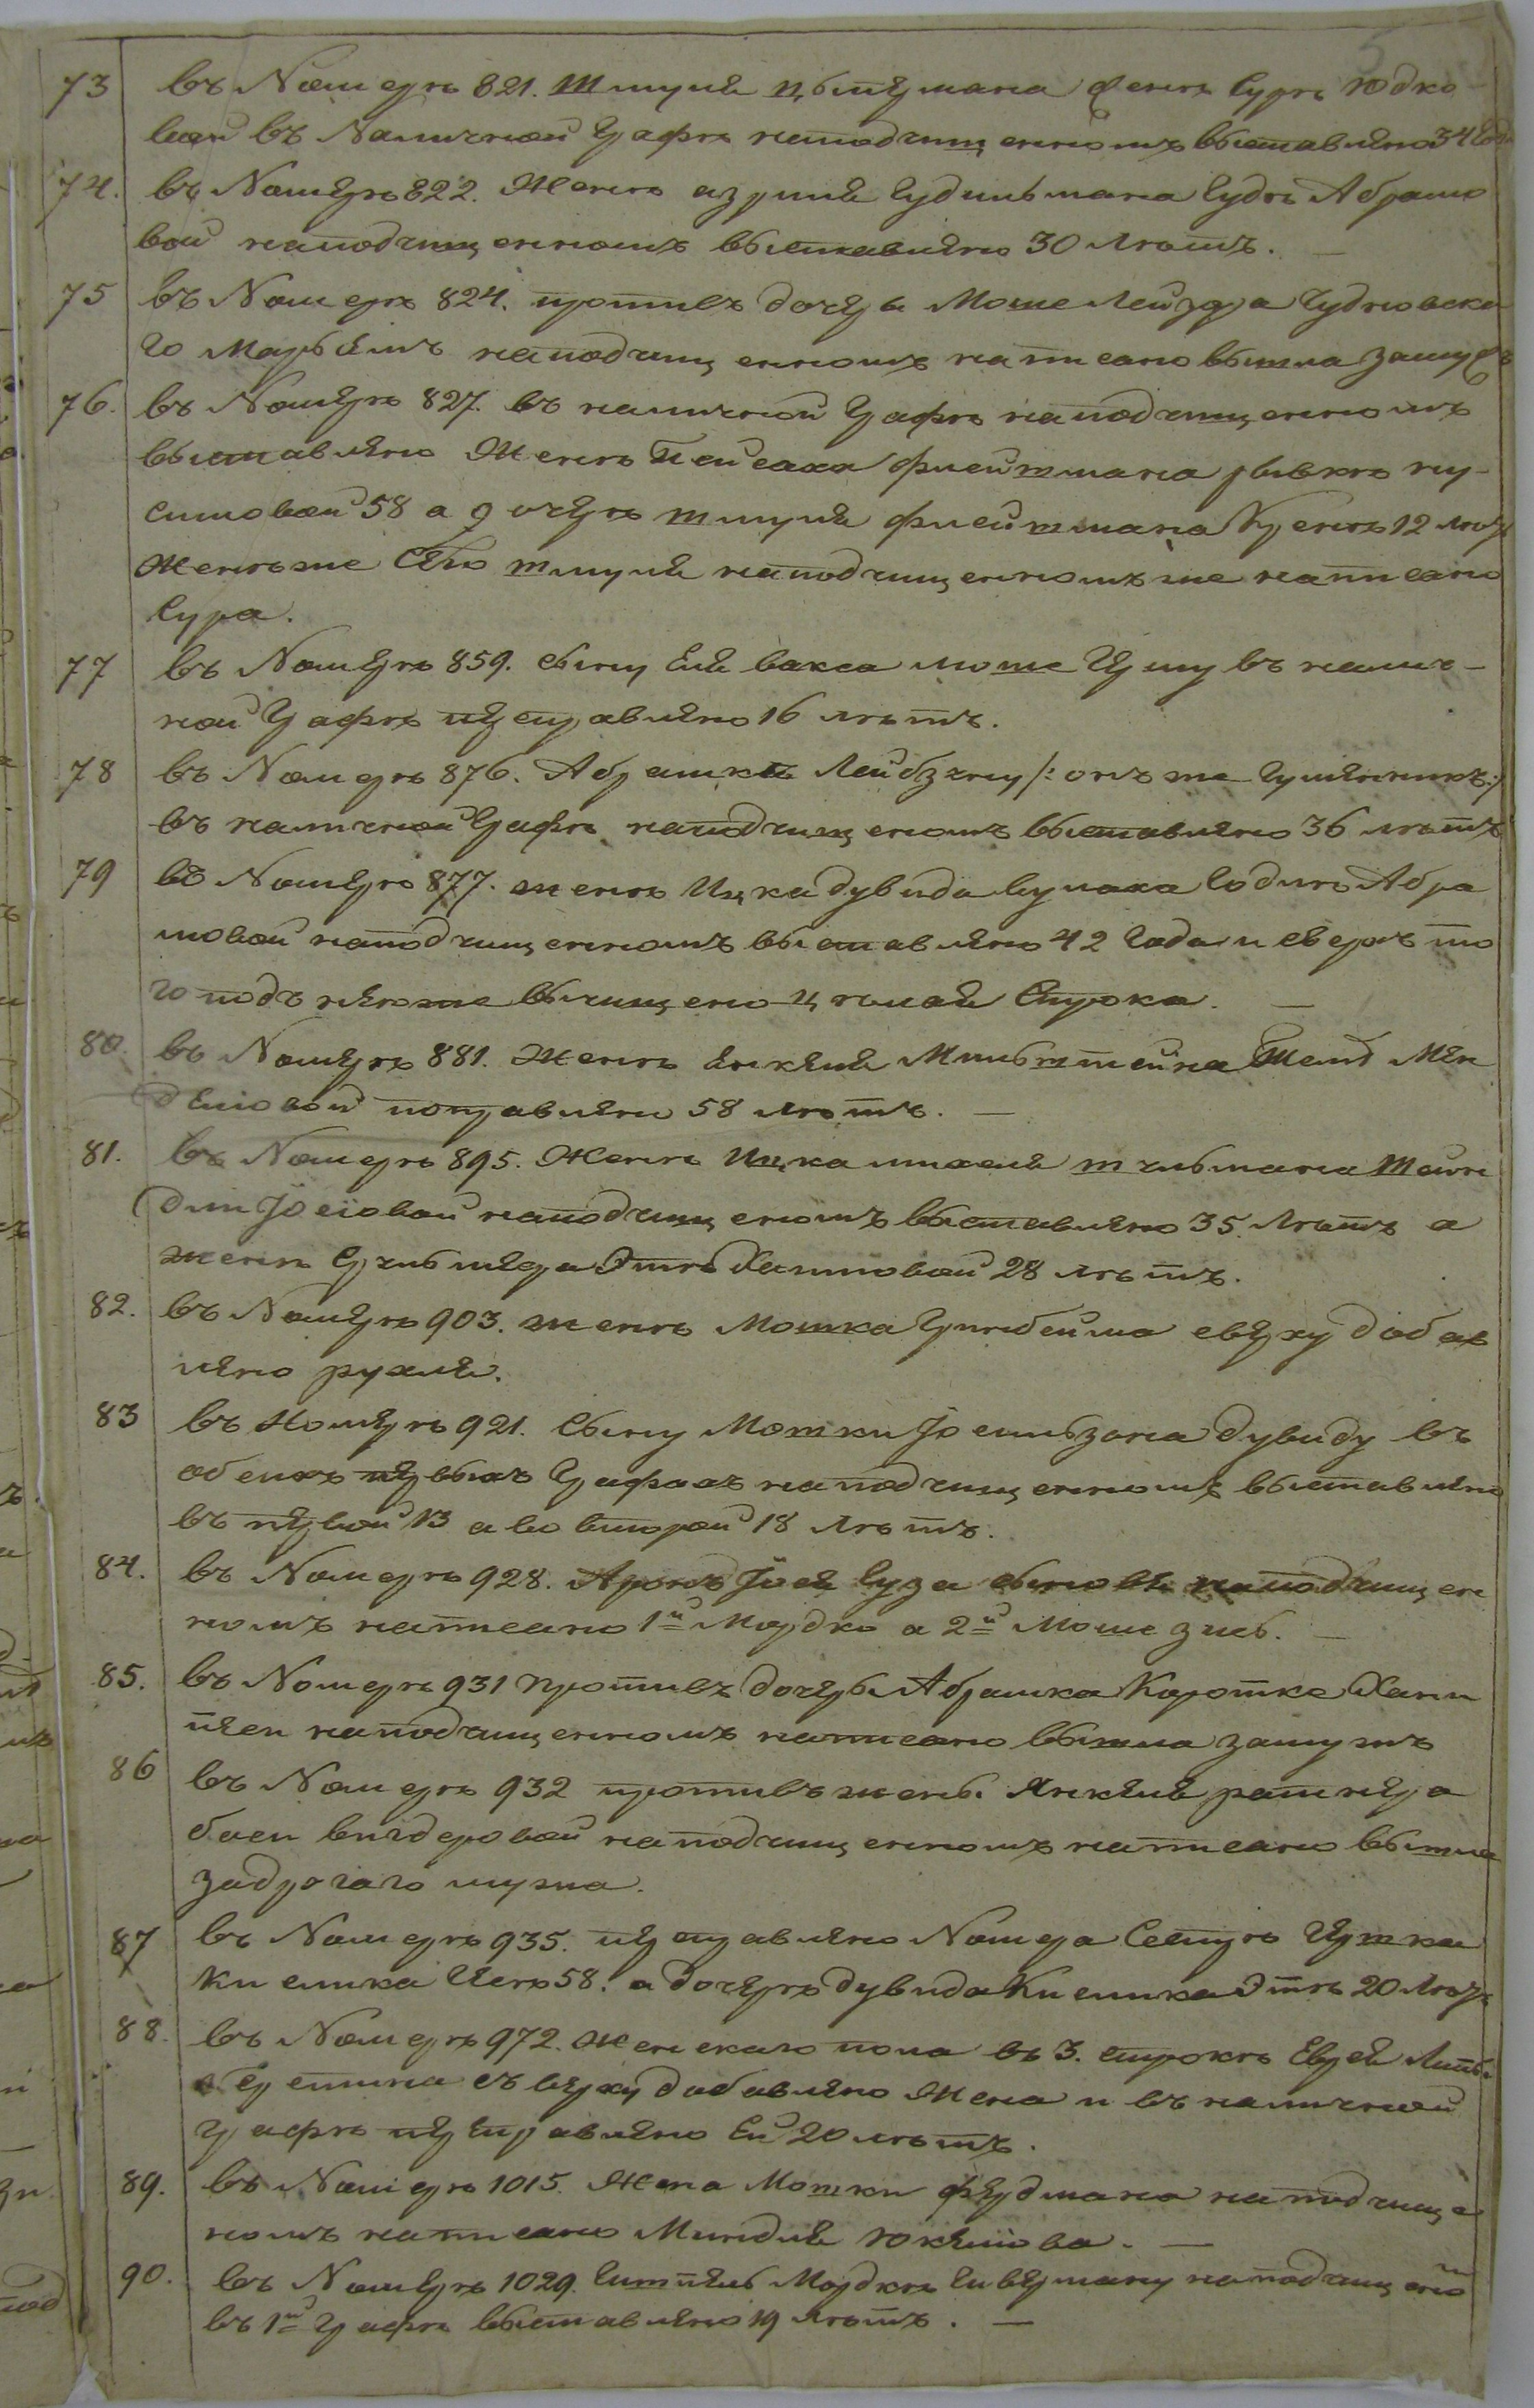 73 въ Номерѣ 821. Шмуля Цымермана женѣ Сурѣ Юдко-
вой въ Наличной Графѣ наподчищенномъ выставлено 34 года
74. въ Номерѣ 822. Женѣ Азриля Гудильмана Гудѣ Абрамо
вой наподчищенномъ выставлено 30 лѣтъ. —
75 въ Номерѣ 824. противъ дочери Моше Лейзера Чудновска
го Марьямъ наподчищенномъ написано вышла замуж
76. въ Номерѣ 827. въ наличной Графѣ наподчищенномъ
выставлено Женѣ Пейсаха Флейтмана Ривкѣ Ну-
симовой 58 а дочерѣ Шмуля Флейтмана 12 лѣтъ
Женѣ же Сего Шмуля наподчищенномъ же написано
Сура.
77 въ Номерѣ 859. сыну Еля Вакса Моше Гершу въ налич-
ной Графѣ исправлено 16 лѣтъ.
78 въ Номерѣ 876. Абрашка Лейбзону /: онъ же :/
въ наличной Графѣ наподчищеномъ выставлено 36 лѣтъ
79 въ Номерѣ 877. женѣ Ицка Дувида Кулака Годлѣ Абра
мовой наподчищенномъ выставлено 42 Года и сверхъ то
го подъ нею же вычищено цѣлая Строка. —
80. въ Номерѣ 881. Женѣ Янкеля Мильштейна Шейд Мен
делиовой поправлено 58 лѣтъ. —
81. въ Номерѣ 895. Женѣ Ицка Михеля Шильмана Шейн
дли Іосіовой наподчищеномъ выставлено 35. Лѣтъ а
женѣ Срульмера Этѣ Хаимовой 28 лѣтъ.
82. въ Номерѣ 903. женѣ Мошка Гринбейма сверху добав
лено Рухля.
83 въ Номерѣ 921. Сыну Мошки Іосильзона Дувиду въ
обеихъ первыхъ Графахъ наподчищенномъ выставлено
въ первой 13 а во второй 18 лѣтъ.
84. въ Номерѣ 928. Аронъ Іося Суза сыновья наподчищен
номъ написано 1й Мордко а 2й Моше Зись. —
85. въ Номерѣ 931 противъ дочеры Абрашка Коротка Хани
Песи наподчищенномъ написано вышла замужъ
86 въ Номерѣ 932 противъ жены Янкеля Ратнера
Баси Вигдоровой наподчищенномъ написано вышла
задругаго мужа.
87 въ Номерѣ 935. исправлено Номера Сестрѣ Гершка
Кислика Генѣ 58. а дочерѣ Дувида Кислика Этѣ 20 лѣтъ
88. въ Номерѣ 972. Женскаго пола въ 3. строкѣ Еврея
сверху добавлено Жена и въ наличной
Графѣ исправлено Ей 20 лѣтъ.
89. въ Номерѣ 1015. Жена Мошки Фердмана наподчище
номъ написано Миндля Юкелiова. —
90. въ Номерѣ 1029. Мордкѣ Сиверману наподчищеном
въ 1й Графѣ выставлено 19 лѣтъ. —